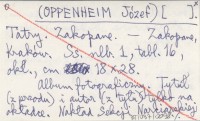 (OPPENHEIM Józef) [ ].
Tatry. Zakopane. – Zakopane,
Kraków. Ss. alb. 1, tabl. 16,
okł., cm 18 x 28.
Album fotograficzny. Tytuł
(z przodu) i autor (z tyłu) tylko na
okładce. Nakład Sekcji Narciarskiej